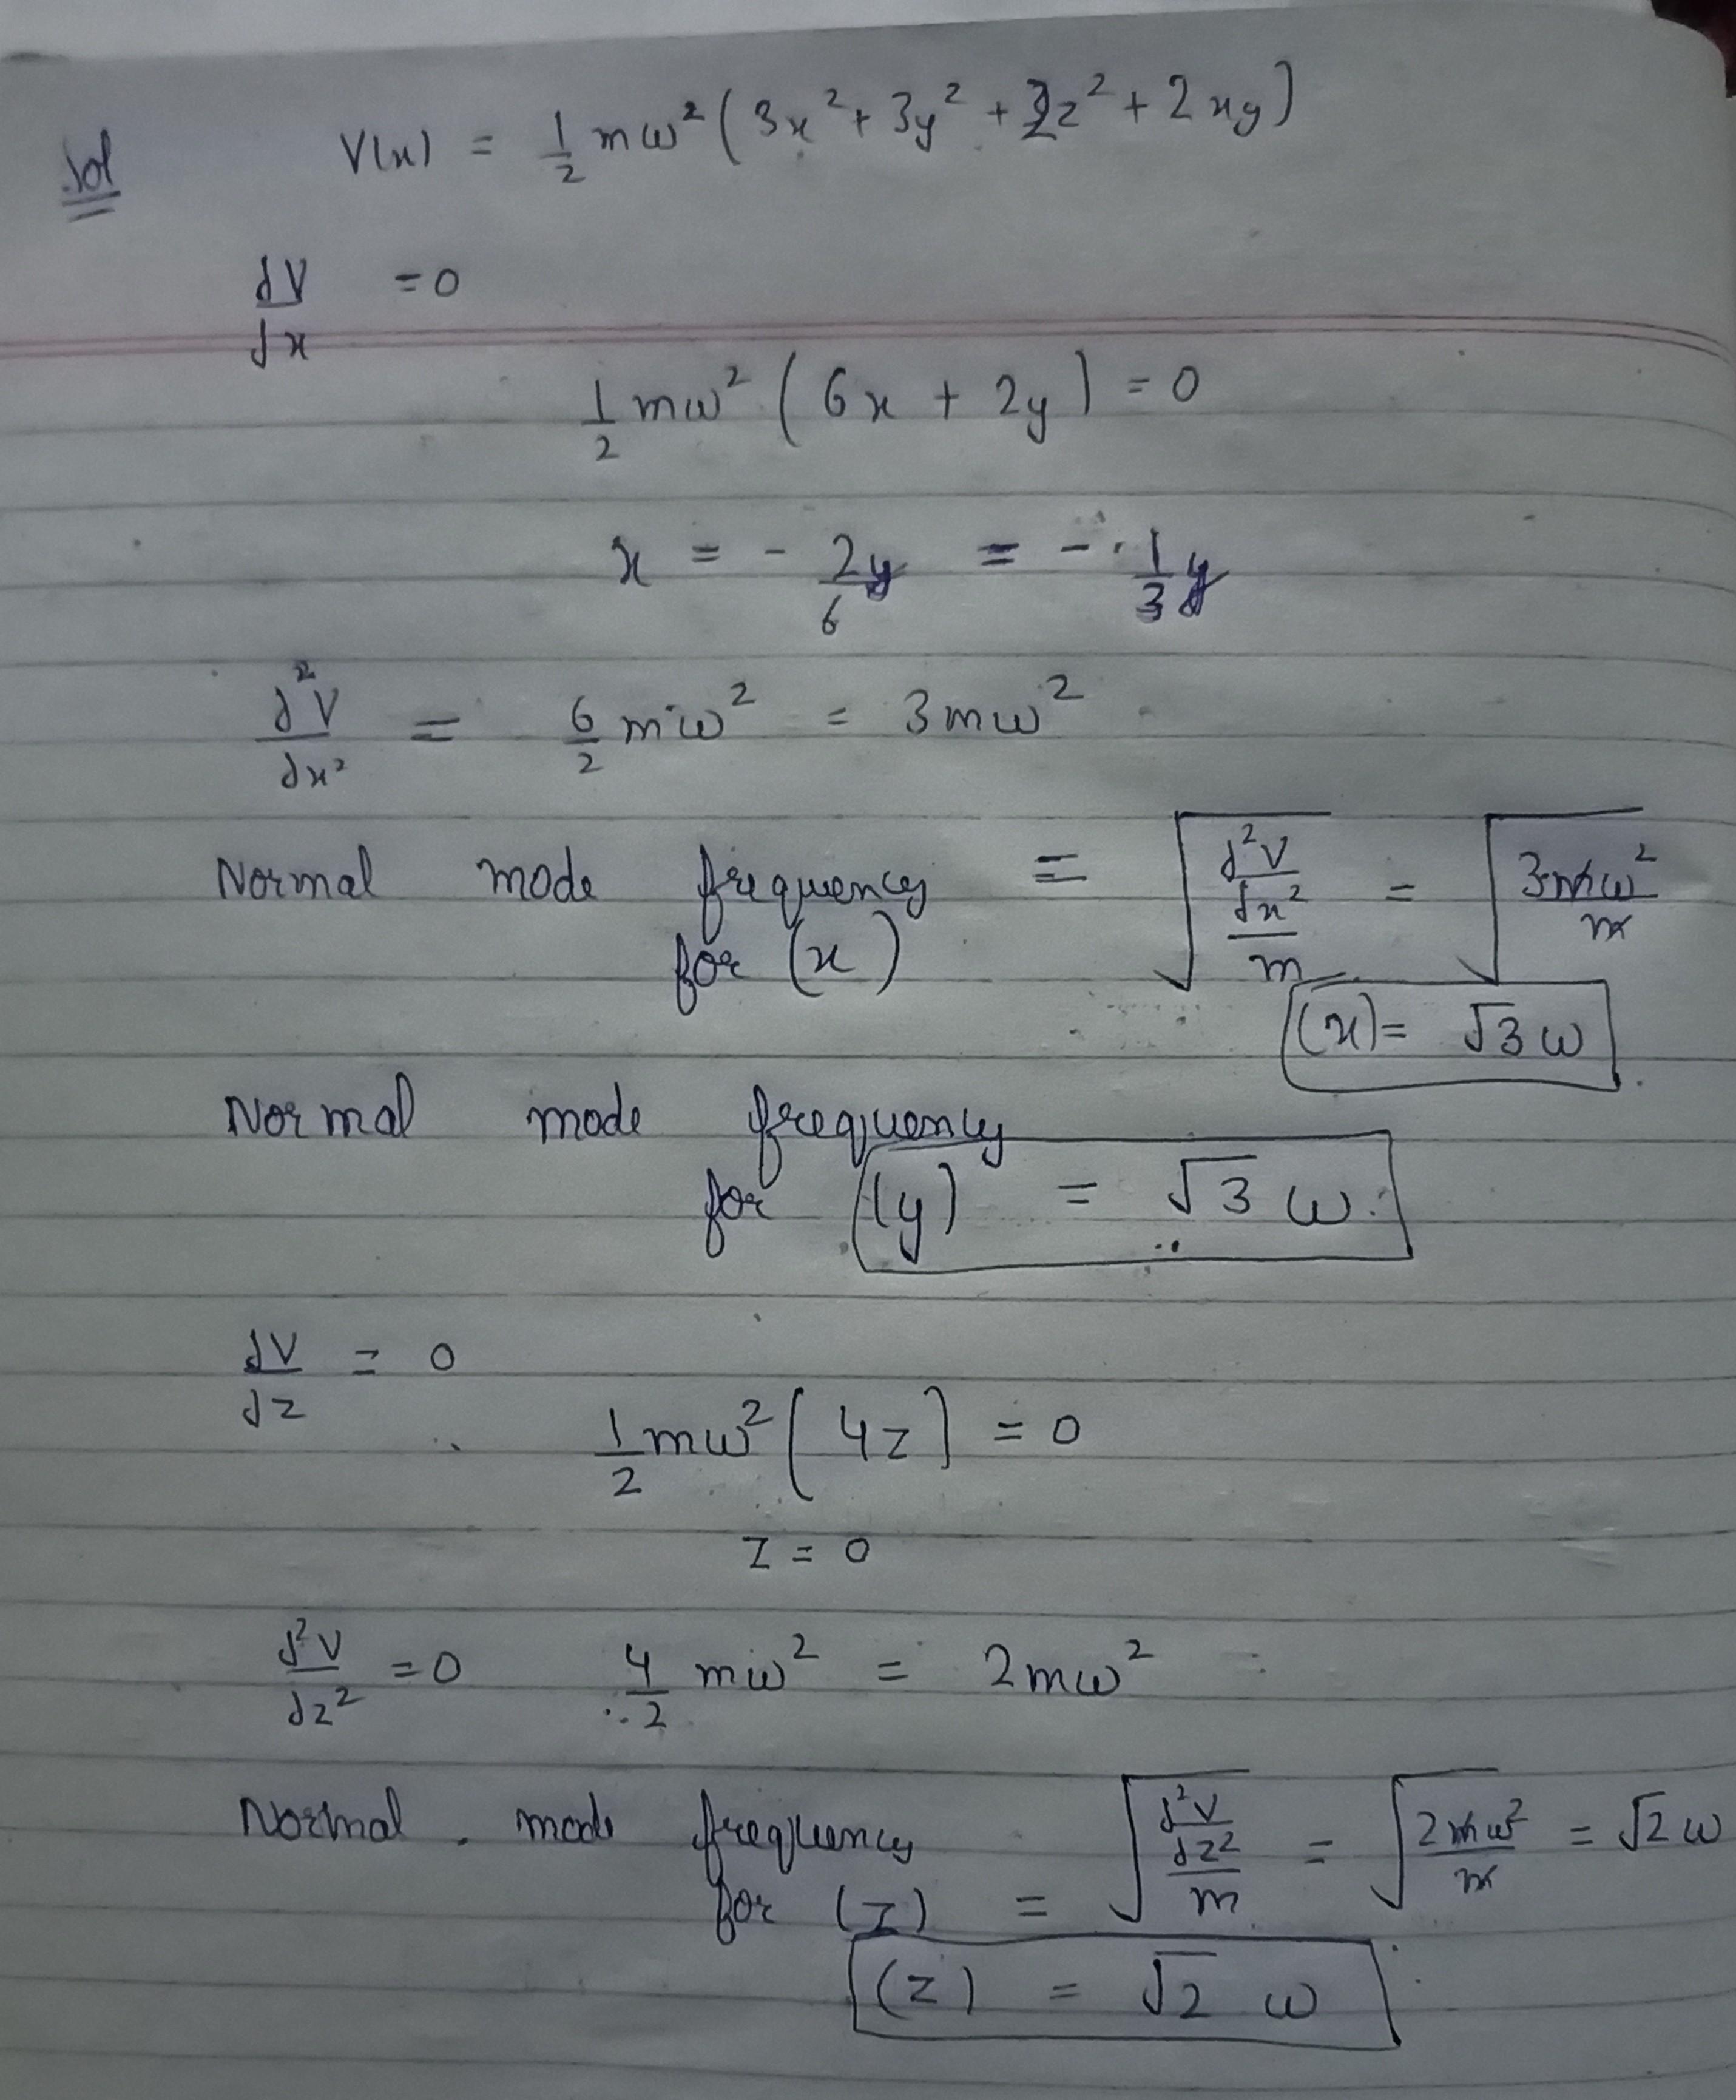 Sol V(x) = 1/2 mω² (3x² + 3y² + 2z² + 2xy)
dV/dx = 0
1/2 mω² (6x + 2y) = 0
x = - 2y/6 = - 1/3 y
d²V/dx² = 6/2 mω² = 3mω²
Normal mode frequency = √(d²V/dx² / m) = √(3mω²/m)
for (x)
(x) = √3 ω
Normal mode frequency
for (y) = √3 ω
dV/dz = 0
1/2 mω² (4z) = 0
z = 0
d²V/dz² = 0 4/2 mω² = 2mω²
Normal mode frequency
for (z) = √(d²V/dz² / m) = √(2mω²/m) = √2 ω
(z) = √2 ω